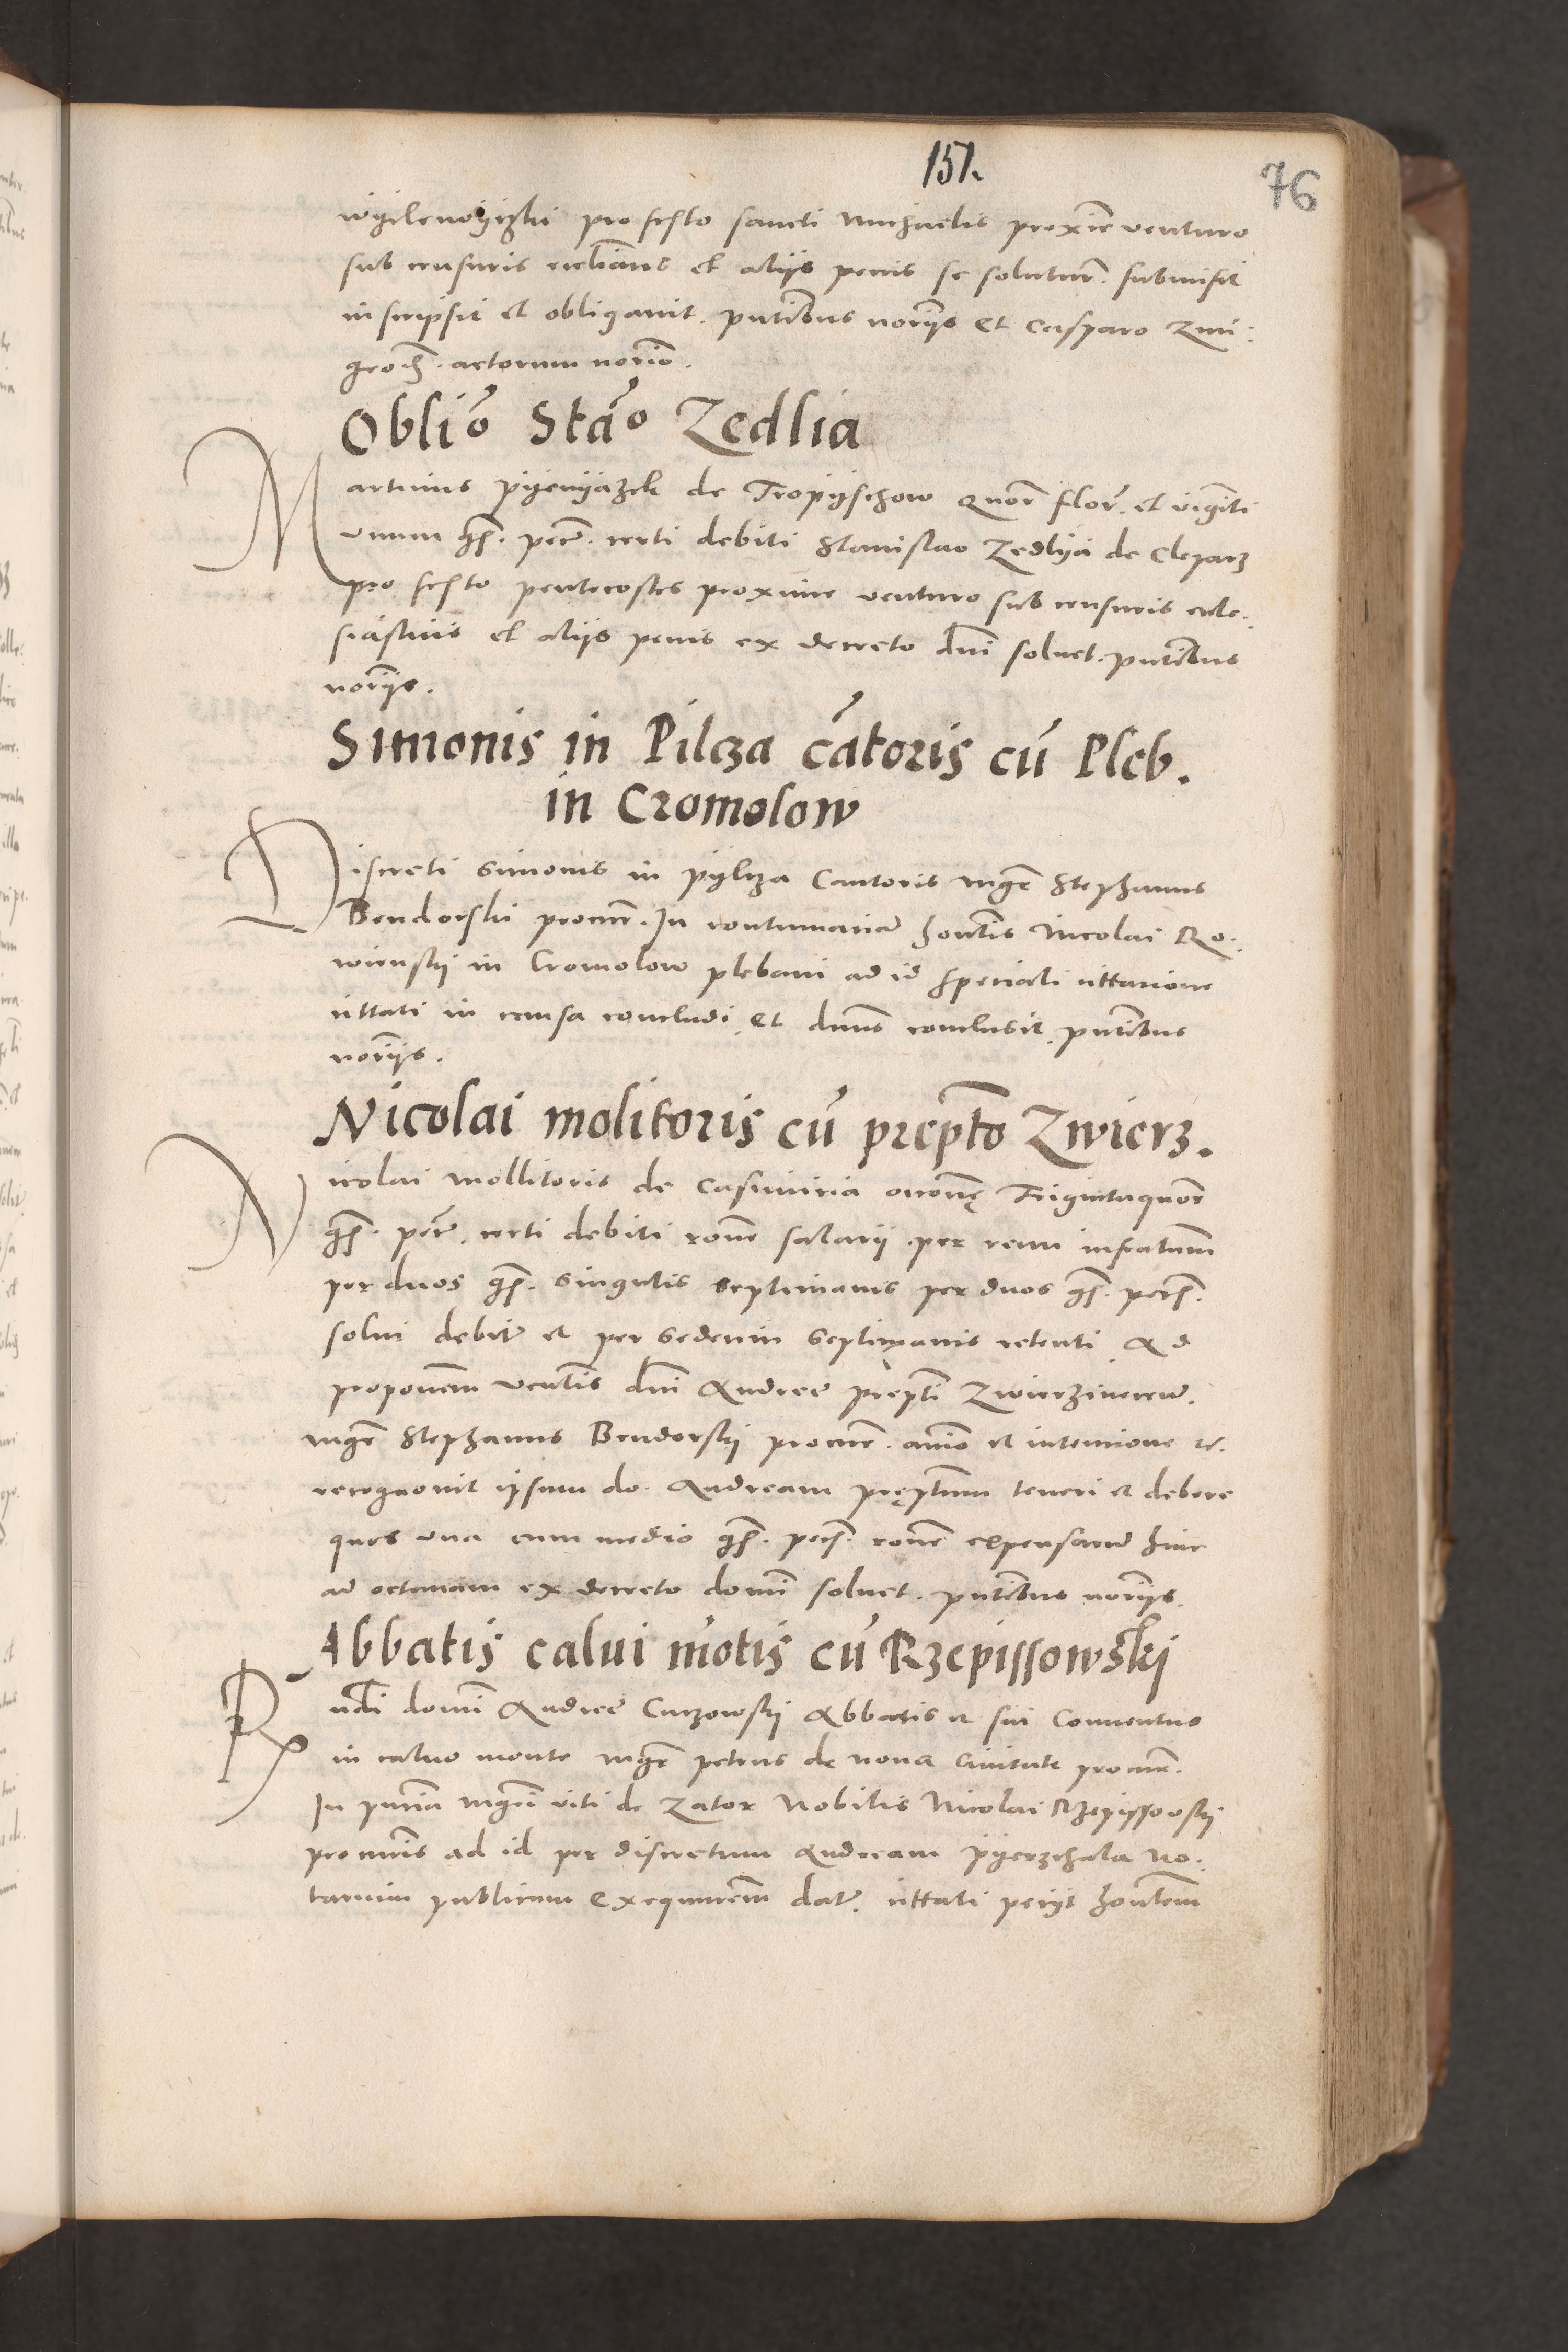 151.
76
pro festo sancti Michaelis proxime venturo
sub censuris ecclīasticis et aliis penis se soluturū. submisit
inscripsit et obligavit. pn̄tibus noriis et Casparo Zmi:
actorum norio.
Oblio Stao Zedlia
Martinus Pyenyazek de Tropyschow quor flor. et viginti
unum gs. pecu. certi debiti Stanislao Zedlya de Cleparz
pro festo pentecostes proxime venturo sub censuris eccle:
siasticis et aliis penis ex decreto dni solvet. pntibus
noriis.
Simonis in Pilcza cātoris cū Pleb.
in Cromolow
Discreti Simonis in Pylcza Cantoris mgr Stephanus
Bendorski procur. In contumaciam honestis Nicolai Ro:
wienskÿ in Cromolow plebani ad id speciali cittatione
cittati in causa concludi et dnus conclusit. pntibus
noriis.
Nicolai molitoris cū prepto Zwierz.
Nicolai mollitoris de Casimiria Trigintaquor
gs. pecu. certi debiti rone salarii per reum infrascriptum
per duos gs. singulis septimanis per duos gs. pecus.
solvi debitū et per sedecim septimanis retenti. Ad
proponem ventis dni Andree prepti Zwierzinecen.
mgr Stephanus Bendorskÿ procur. animo et intencione etc.
recognovit ipsum do. Andream preptum teneri et debere
quos una cum medio gs. pecus. rone expensarum hinc
ad octavam ex decreto domi solvet. pntibus noriis.
Abbatis calui mōtis cū Rzepissowski
Rndi domi Andree Curzowskÿ Abbatis et sui Conventus
in calvo monte mgr Petrus de nova Civitate procur.
In pntia mgri Viti de Zator Nobilis Nicolai Rzepissowskÿ
procuris ad id per discretum Andream Pyerzchala No:
tarium publicum exequutorem datū. cittati petiit